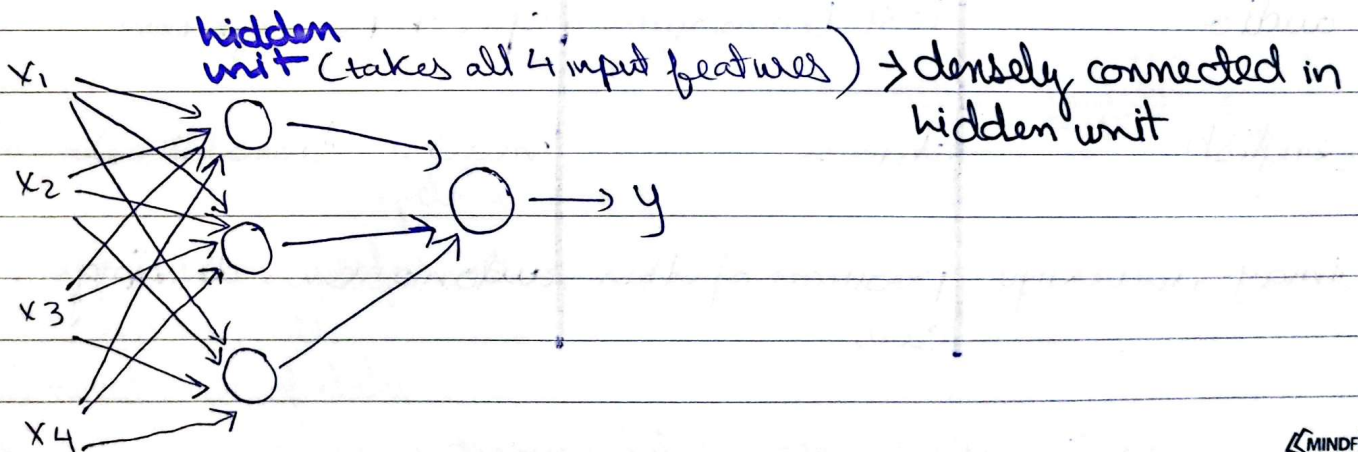 hidden
x1 unit (takes all 4 input features) → densely connected in
hidden unit
x2
y
x3
x4